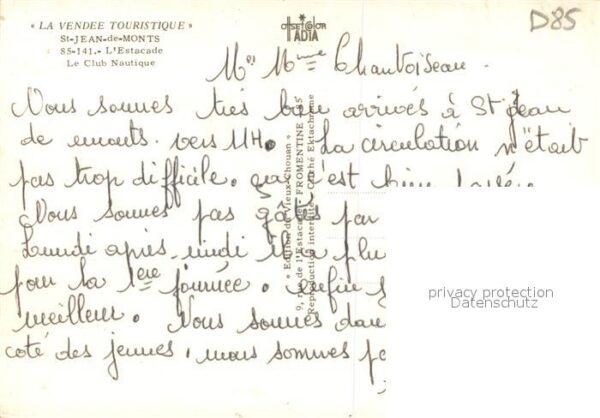 « LA VENDEE TOURISTIQUE »
St-JEAN-de-MONTS
85-141.- L'Estacade
Le Club Nautique
OFFSET COLOR
IADIA
D85
Mr Mme Chantoiseau.
Nous sommes très bien arrivés à St Jean
de monts. vers 11H. La circulation n'était
pas trop difficile. ça c'est bien passé.
Nous sommes pas gâtés par
Lundi après midi il a plu
pour la 1ère journée. enfin
meilleur. Nous sommes dans
coté des jeunes. nous sommes
« Edition du Vieux-Chouan »
9, rue de l'Estacade - FROMENTINE (85)
Reproduction interdite - Cliché Ektachrome
privacy protection
Datenschutz